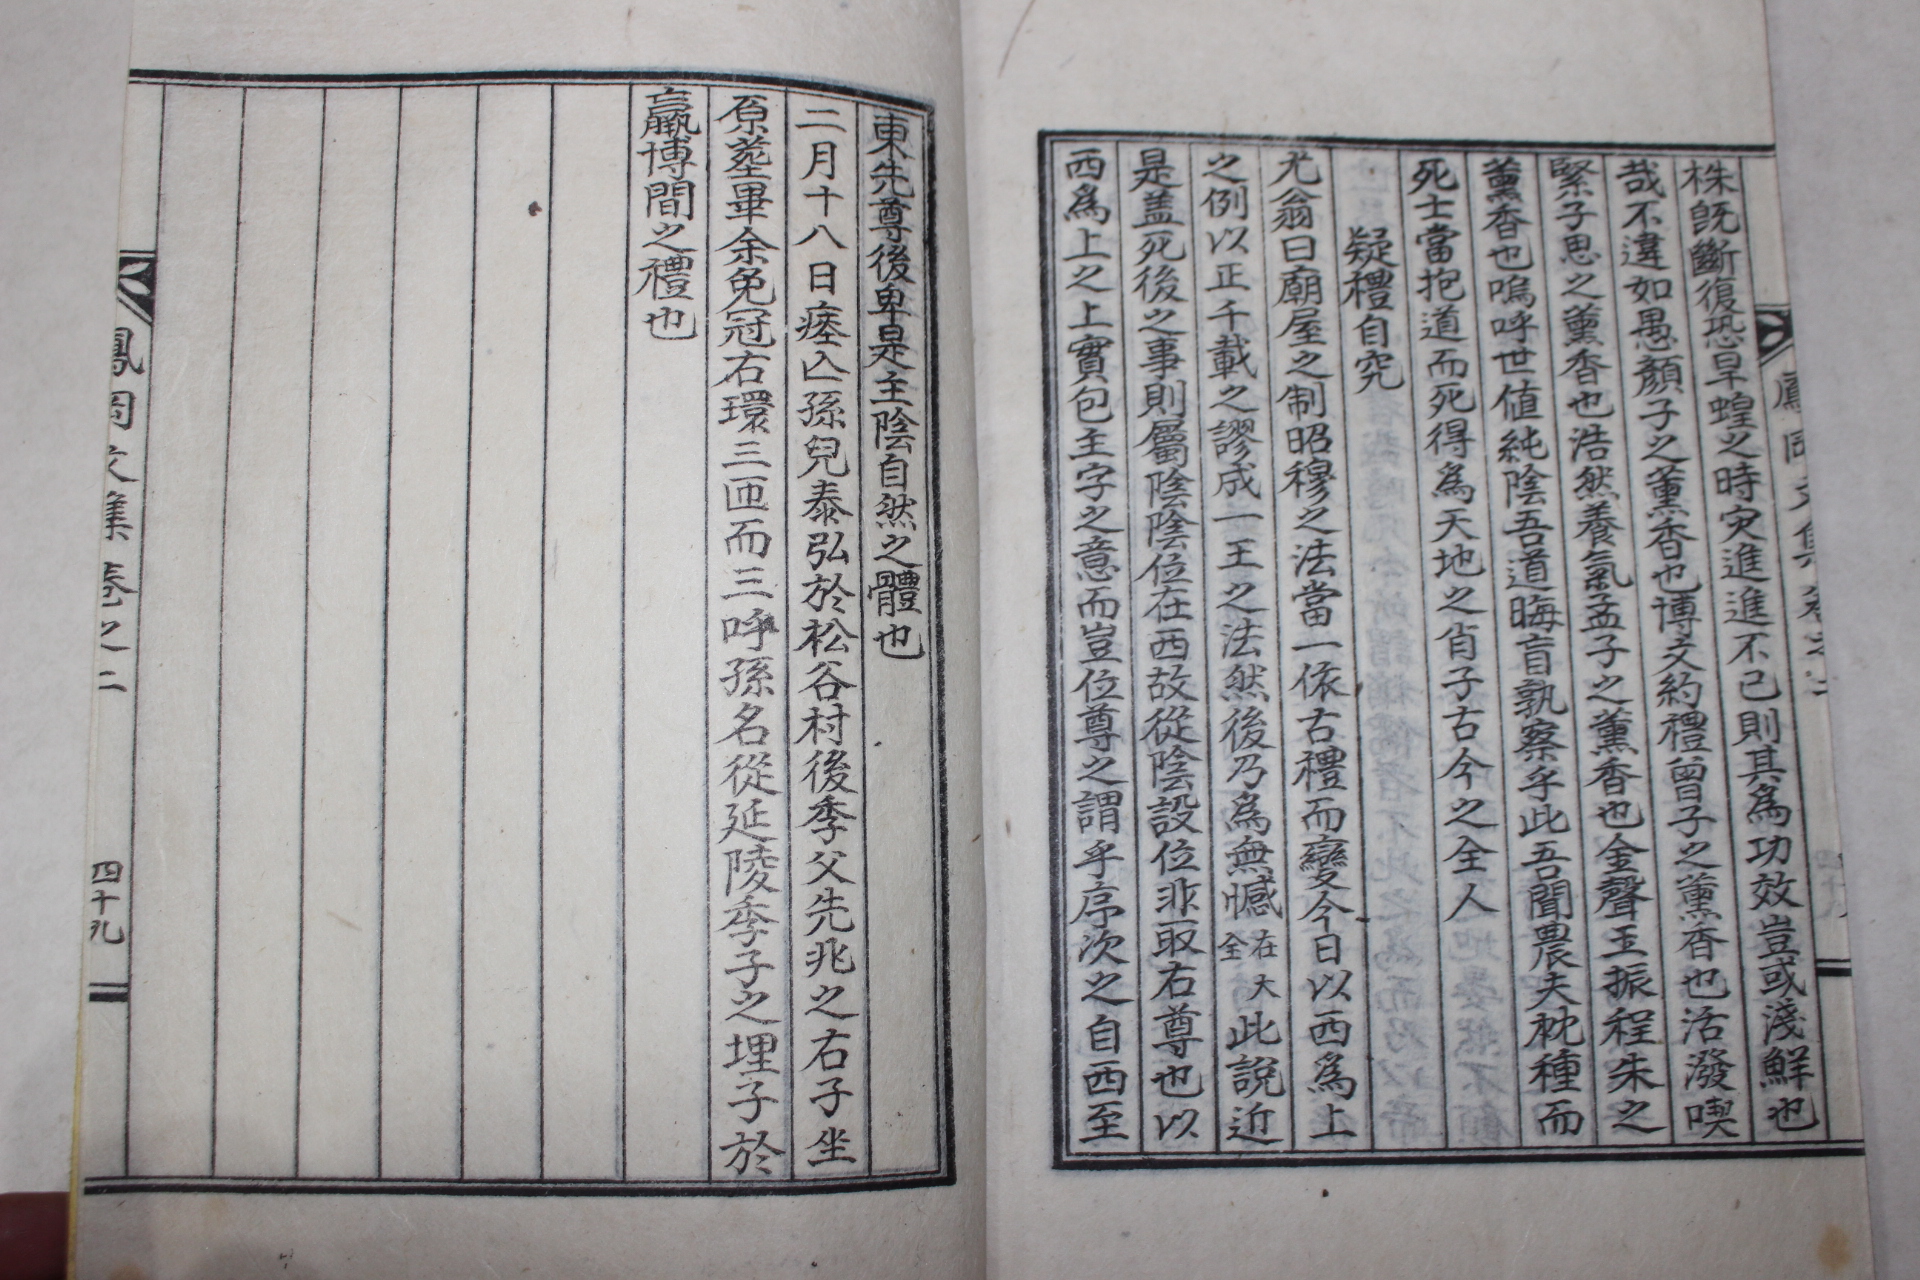 株旣斷復恐旱蝗之時灾進進不已則其爲功效豈或淺鮮也
哉不違如愚顏子之薰香也博文約禮曾子之薰香也活潑喫
緊子思之薰香也浩然養氣孟子之薰香也金聲玉振程朱之
薰香也嗚呼世値純陰吾道晦盲孰察乎此吾聞農夫枕種而
死士當抱道而死得爲天地之肖子古今之全人
疑禮自究
尤翁曰廟屋之制昭穆之法當一依古禮而變今日以西爲上
之例以正千載之謬成一王之法然後乃爲無憾在大全此說近
是盖死後之事則屬陰陰位在西故從陰設位非取右尊也以
西爲上之上實包主字之意而豈位尊之謂乎序次之自西至
東先尊後卑是主陰自然之體也
二月十八日瘞亾孫兒泰弘於松谷村後季父先兆之右子坐
原葬畢余免冠右環三匝而三呼孫名從延陵季子之埋子於
嬴博間之禮也
鳳岡文集卷之二
四十九